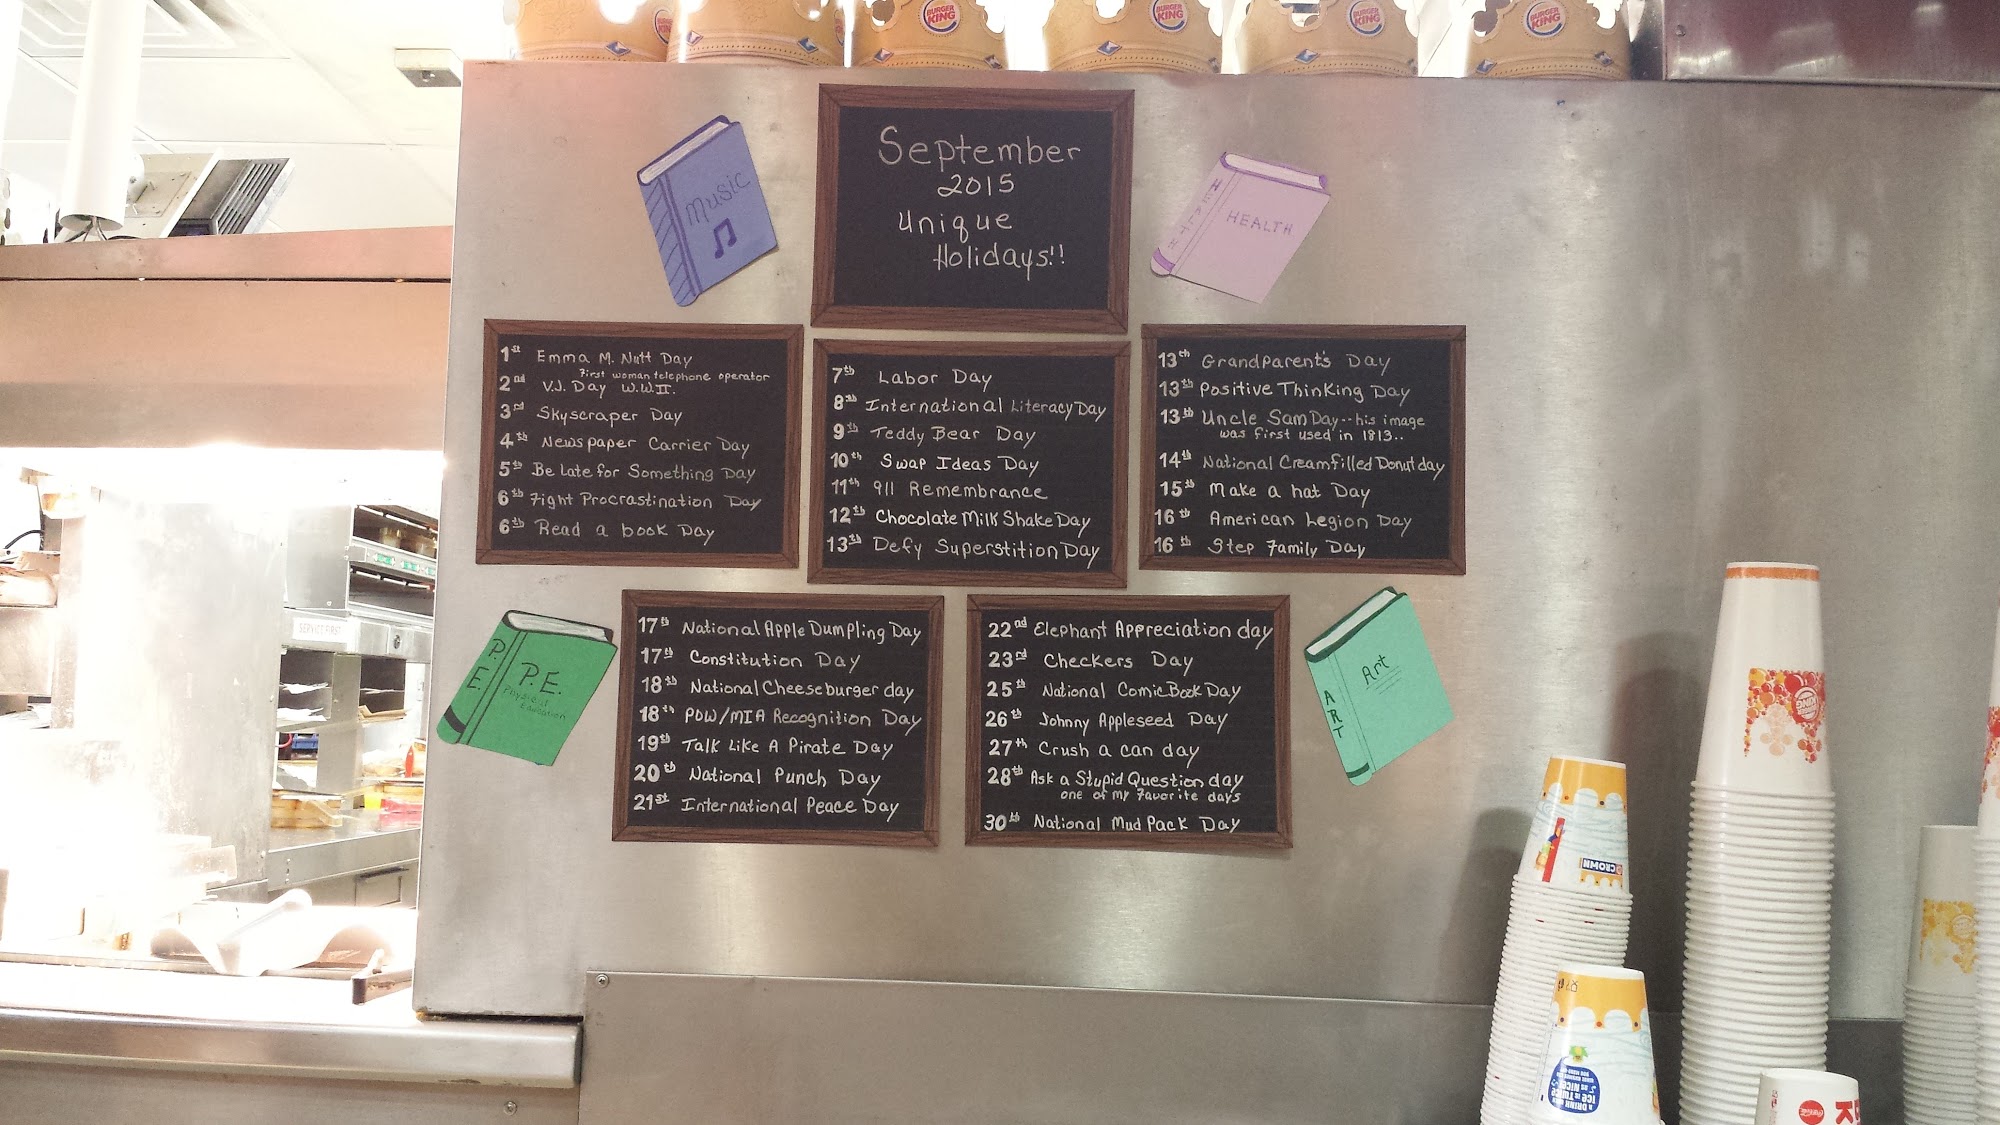 BURGER KING
BURGER KING
BURGER KING
BURGER KING
BURGER KING
September
2015
Unique
Holidays!!
Music
HEALTH
HEALTH
1st Emma M. Nutt Day
First woman telephone operator
2nd V.J. Day W.W.II.
3rd Skyscraper Day
4th Newspaper Carrier Day
5th Be Late for Something Day
6th Fight Procrastination Day
6th Read a book Day
7th Labor Day
8th International Literacy Day
9th Teddy Bear Day
10th Swap Ideas Day
11th 911 Remembrance
12th Chocolate Milk Shake Day
13th Defy Superstition Day
13th Grandparent's Day
13th Positive Thinking Day
13th Uncle Sam Day -- his image
was first used in 1813..
14th National Creamfilled Donut day
15th Make a hat Day
16th American Legion Day
16th Step Family Day
P.E.
P.E.
Physical
Education
17th National Apple Dumpling Day
17th Constitution Day
18th National Cheeseburger day
18th POW/MIA Recognition Day
19th Talk Like A Pirate Day
20th National Punch Day
21st International Peace Day
22nd Elephant Appreciation day
23rd Checkers Day
25th National Comic Book Day
26th Johnny Appleseed Day
27th Crush a can day
28th Ask a Stupid Question day
one of my favorite days
30th National Mud Pack Day
Art
ART
SERVICE FIRST
BURGER KING
CROWN
A DRINK WITH
ICE IS TWICE
AS NICE!